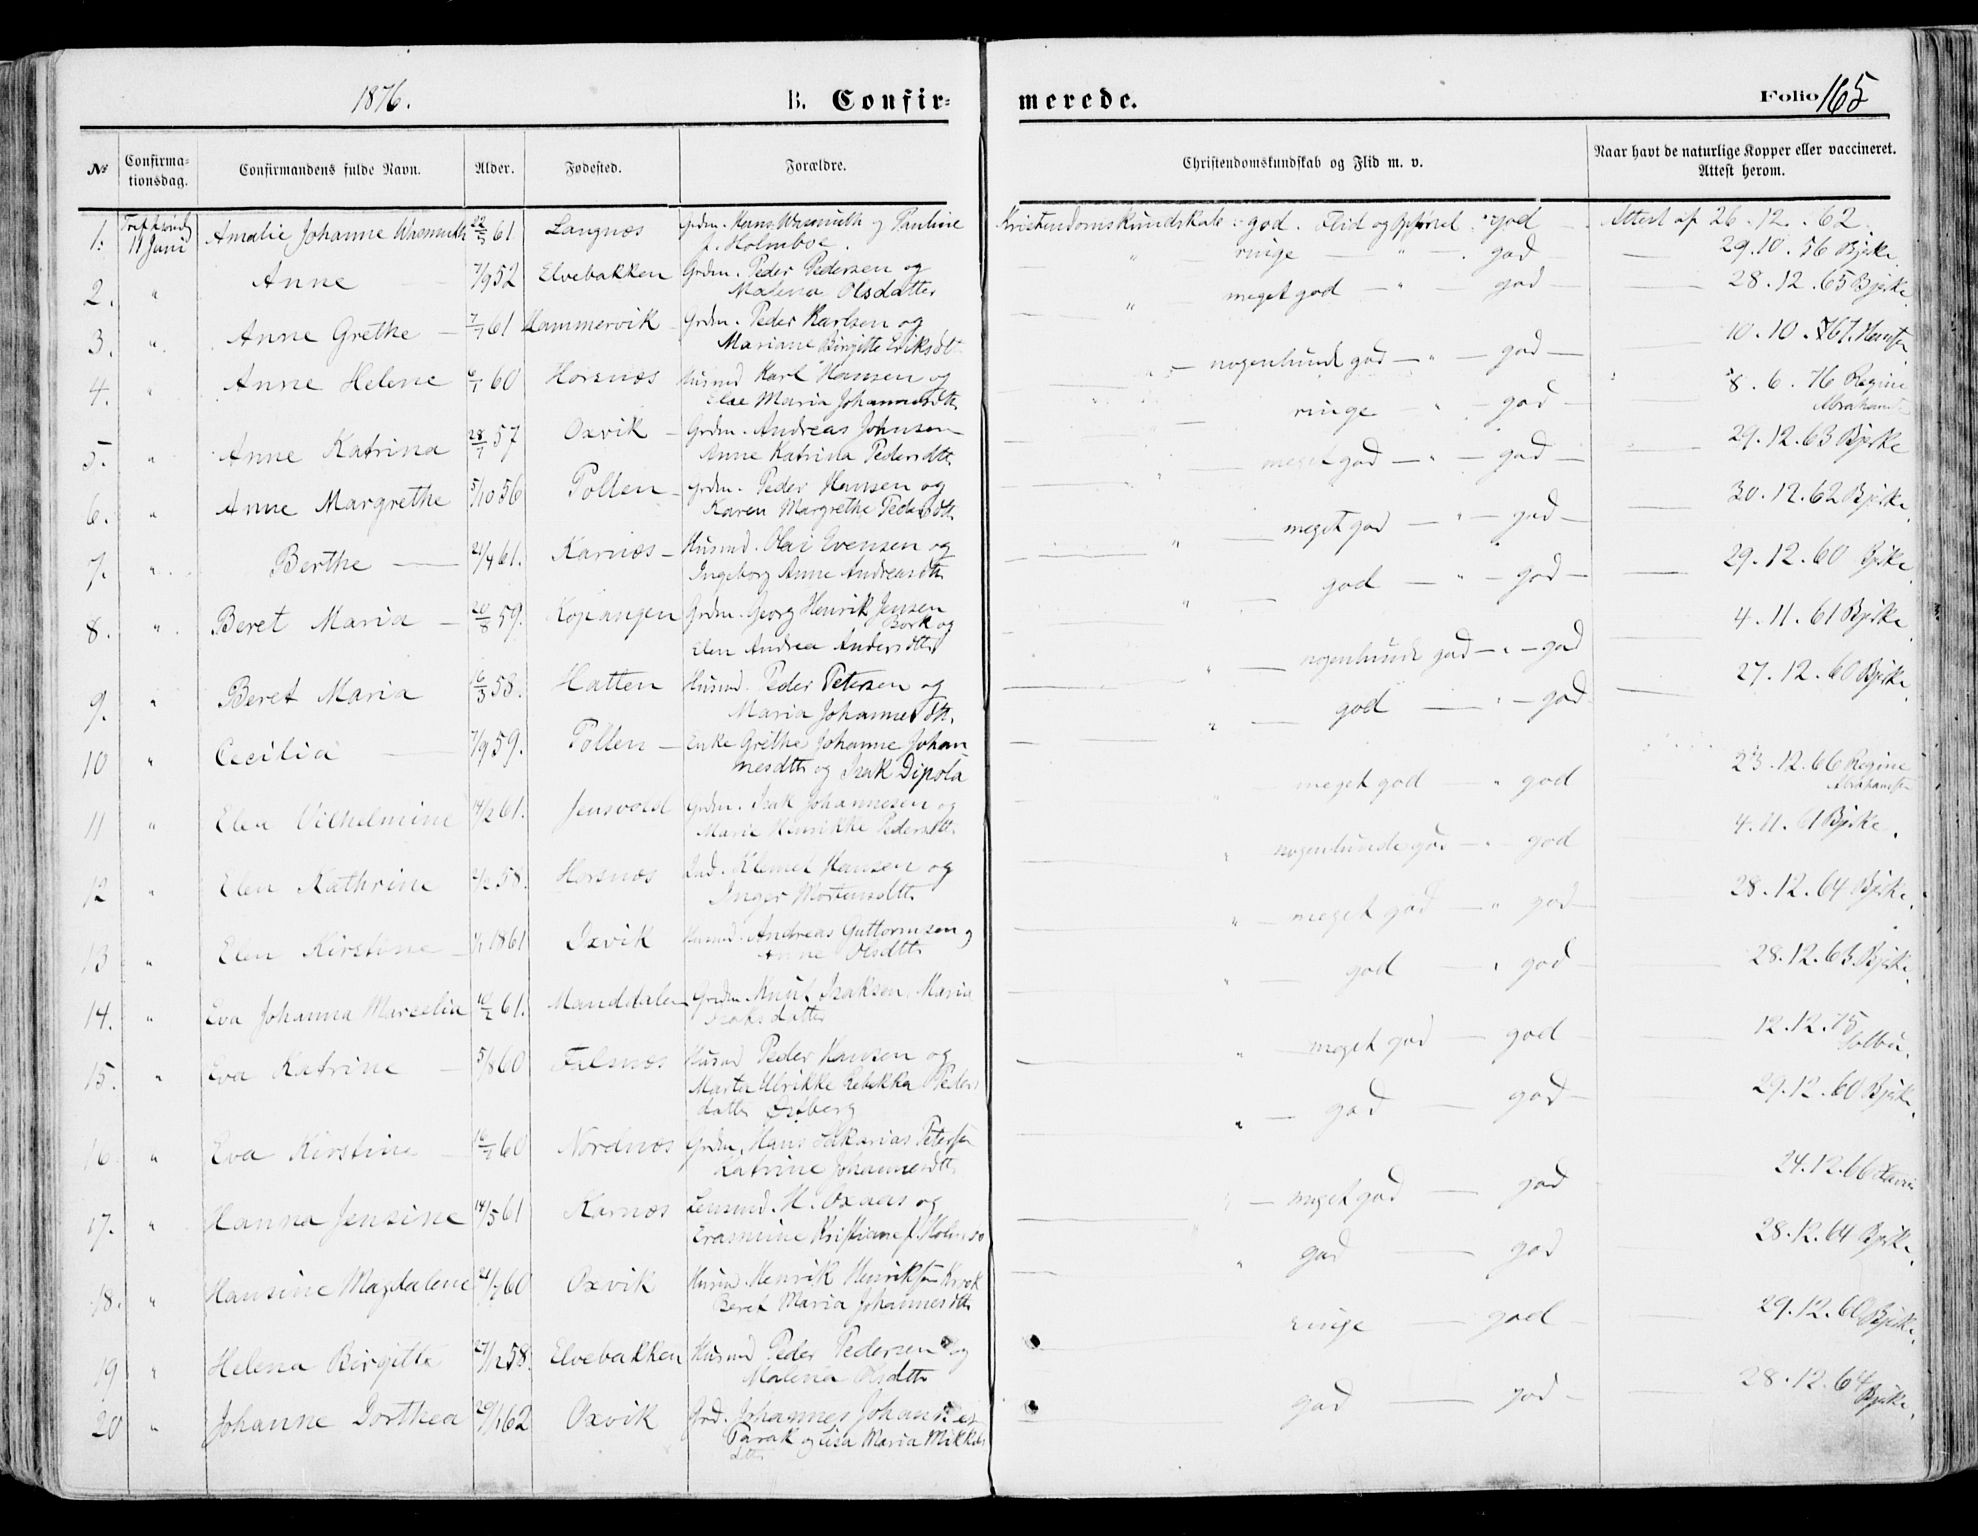 1876.
B. Confirmerede.
Folio 165
№ Confirmationsdag. Confirmandens fulde Navn. Alder. Fødested. Forældre. Christendomskundskab og Flid m. v. Naar havt de naturlige Kopper eller vaccineret. Attest herom.
1. 11 Juni Amalie Johanne Wasmuth 22/5 61 Langnæs Grdm. Hans Wasmuth og Pauline f. Holmboe. Kristendomskundskab: god. Flid og Opførsel: god Attest af 26.12.62.
2. " Anne 7/9 52 Elvebakken Grdm. Peder Pedersen og Malena Olsdatter " ringe " god 29.10.56 Bjerke.
3. " Anne Grethe 7/7 61 Hammervik Grdm. Peder Karlsen og Mariane Birgitte Eriksdtr " meget god " god 28.12.65 Bjerke
4. " Anne Helene 6/1 60 Horsnæs Husmd Karl Hansen og Else Maria Johannesdttr " nogenlunde god " god 10.10.67.
5. " Anne Katrina 28/7 57 Oxvik Grdm. Andreas Johnsen Anne Katrina Pedersdttr ringe " god 8.6.76 Regine Abrahams
6. " Anne Margrethe 5/10 56 Pollen Grdm. Peder Hansen og Karen Margrethe Pedersdttr " meget god " god 29.12.63 Bjerke
7. " Berthe 21/4 61. Karnæs Husmd. Olai Evensen og Ingeborg Anne Andreasdttr " meget god " god 30.12.62 Bjerke.
8. " Beret Maria 20/8 59. Kopangen Grdm. Georg Henrik Jensen Bork og Elen Andrea Andersdttr " god " god 29.12.60 Bjerke.
9. " Beret Maria 16/3 58. Hatten Husmd. Peder Petersen og Maria Johannesdttr. " nogenlunde god " god 4.11.61 Bjerke
10 " Cecilia 7/9 59. Pollen Enke Grethe Johanne Johannesdttr og Isak Dipola " god " god 27.12.60 Bjerke.
11 " Elen Vilhelmine 14/2 61. Jensvold Grdm. Isak Johannesen og Marie Henrikke Pedersdttr " meget god " god 23.12.66 Regine Abrahamsen
12 " Elen Kathrine 58. Horsnæs Ind. Klemet Hansen og Inger Mortensdttr " nogenlunde god " god 4.11.61 Bjerke.
13 " Elen Kirstine 1861 Oxvik Husmd. Andreas Guttormsen og Anne Olsdttr " meget god " god 28.12.64 Bjerke.
14. " Eva Johanna Marselia 10/2 61. Manddalen Grdm Knut Isaksen, Maria Isaksdatter " god " god 28.12.63 Bjerke.
15. " Eva Katrine 5/8 60 Falsnæs Husmd Peder Hansen og Marta Ulrikke Rebekka Pedersdatter Østberg " meget god god 12.12.75 Solbu.
16. " Eva Kirstine 16/1 60 Nordnæs Grdm. Hans Zakarias Petersen Katrine Johannesdttr " god god 29.12.60 Bjerke.
17. " Hanna Jensine 14/5 61 Karnæs Lensmd. M. Oxaas og Erasmine Kristiane f. Holmboe " meget god god 24.12.66
18. " Hansine Magdalene 21/7 60 Oxvik Husmd. Henrik Henriksen Beret Maria Johannesdttr " god god 28.12.64 Bjerke.
19 " Helena Birgitte 27/12 58. Elvebakken Husmd Peder Pedersen og Malena Olsdttr ringe god 29.12.60 Bjerke.
20 " Johanne Dorthea 20/1 62 Oxvik Grd. Johannes Johannes Parak og Lisa Maria Mikkelsdttr god god 28.12.64 Bjerke.